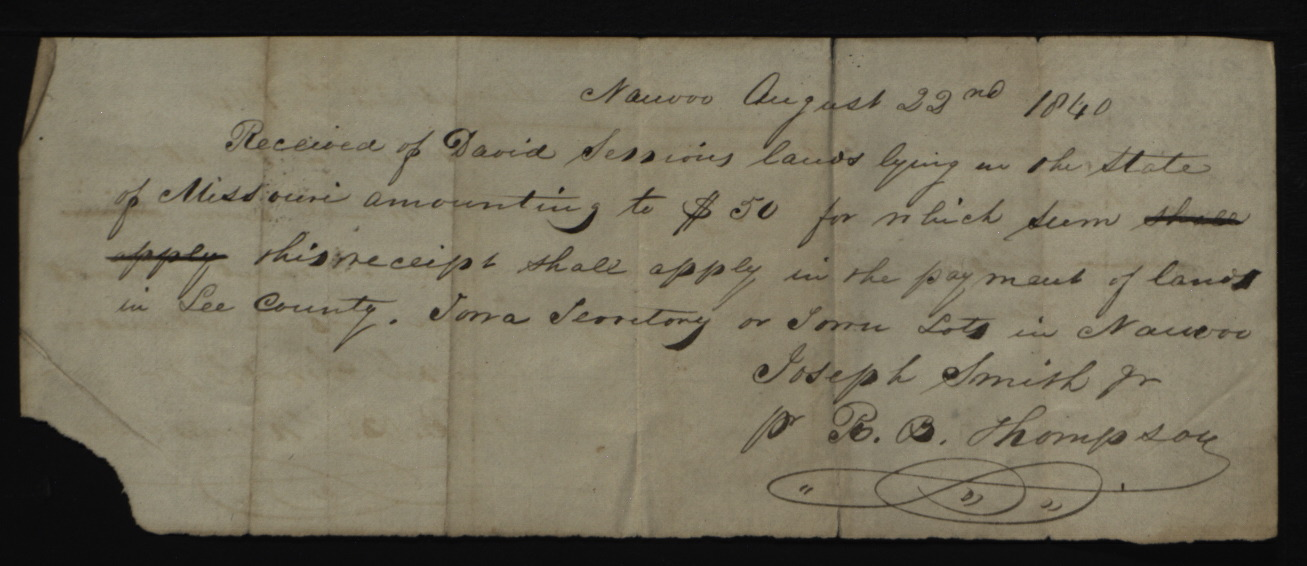 Nauvoo August 22nd 1840
Received of David Sessions lands lying in the State
of Missouri amounting to $50 for which sum shall
apply this receipt shall apply in the payment of lands
in Lee County. Iowa Territory or Town Lots in Nauvoo
Joseph Smith Jr
pr R. B. Thompson